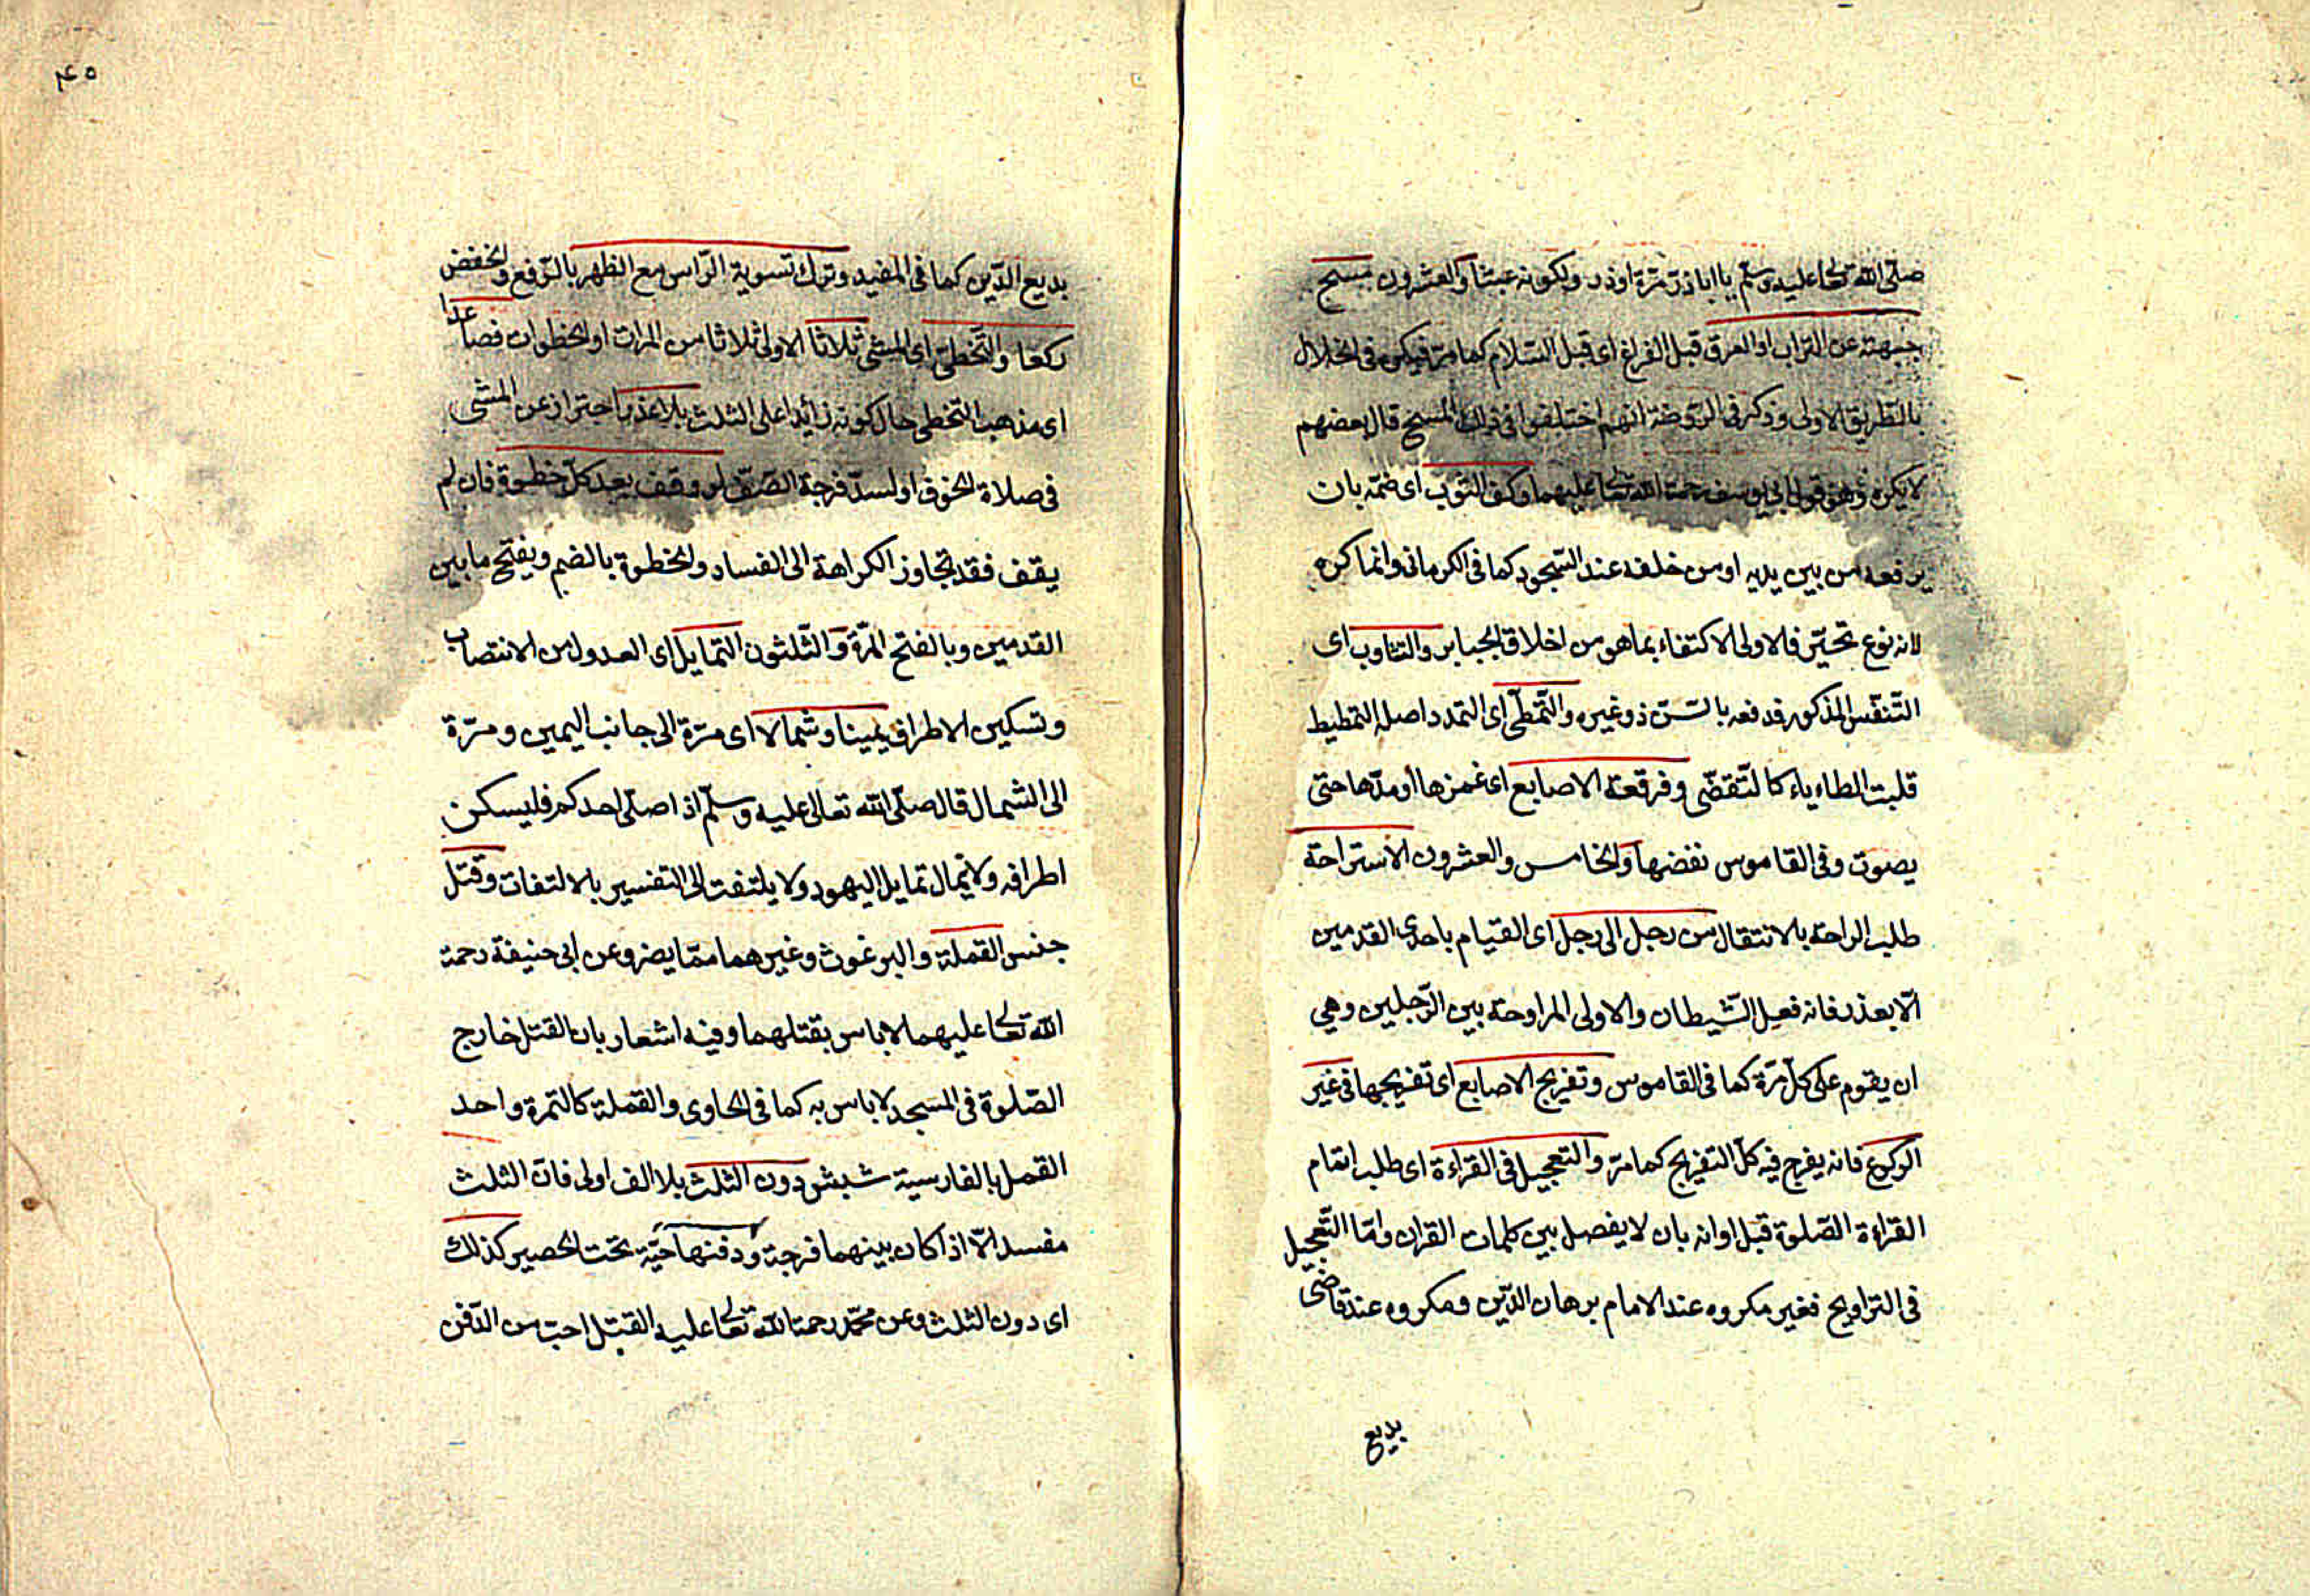 صلى الله تعالى عليه وسلم يا اباذر مرة اوذر ولكونه عبثا والعشرون مسح
جبهته عن التراب او العرق قبل الفراغ اى قبل السلام كما مر فيكره فى الخلال
بالطريق الاولى وذكر فى الروضة انهم اختلفوا فى ذلك المسح قال بعضهم
لا يكره وهو قول ابى يوسف رحمة الله تعالى عليهما وكف الثوب اى ضمه بان
يرفعه من بين يديه او من خلفه عند السجود كما فى الكرمانى وانما كره
لانه نوع تجبر فالاولى الاكتفاء بما هو من اخلاق الجبابر والتثاوب اى
التنفس المذكور فدفعه بالسن ذو غيره والتمطى اى التمدد اصله التمطيط
قلبت الطاء ياء كالتقضى وفرقعة الاصابع اى غمزها او مدها حتى
يصوت وفى القاموس نفضها والخامس والعشرون الاستراحة
طلب الراحة بالانتقال من رجل الى رجل اى القيام باحدى القدمين
الا بعذر فانه فعل الشيطان والاولى المراوحة بين الرجلين وهي
ان يقوم على كل مرة كما فى القاموس وتفريج الاصابع اى تفريجها فى غير
الركوع فانه يفرج فيه كل التفريج كما مر والتعجيل فى القراءة اى طلب اتمام
القراءة الصلوة قبل اوانه بان لا يفصل بين كلمات القران واما التعجيل
فى التراويح فغير مكروه عند الامام برهان الدين ومكروه عند قاضى
بديع
٤٥
بديع الدين كما فى المفيد وترك تسوية الراس مع الظهر بالرفع والخفض
ركعا والتخطى اى المشى ثلاثا الاولى ثلاثا من المرات او الخطوات فصاعدا
اى مذهب التخطى حال كونه زائدا على الثلث بلا عذر احتراز عن المشى
فى صلاة الخوف او لسد فرجة الصف لو وقف بعد كل خطوة فان لم
يقف فقد تجاوز الكراهة الى الفساد والخطوة بالضم ويفتح ما بين
القدمين وبالفتح المرة والثلثون التمايل اى العدول من الانتصاب
وتسكين الاطراف يمينا وشمالا اى مرة الى جانب اليمين ومرة
الى الشمال قال صلى الله تعالى عليه وسلم اذا صلى احدكم فليسكن
اطرافه ولا يمال تمايل اليهود ولا يلتفت الى التفسير بالالتفات وقتل
جنس القملة والبرغوث وغيرهما مما يضر وعن ابى حنيفة رحمة
الله تعالى عليهما لا باس بقتلهما وفيه اشعار بان القتل خارج
الصلوة فى المسجد لا باس به كما فى الحاوى والقملة كالتمرة واحد
القمل بالفارسية شبش دون الثلث بلا الف اولى فان الثلث
مفسد الا اذا كان بينهما فرجة ودفنها حية تحت الحصير كذلك
اى دون الثلث وعن محمد رحمة الله تعالى عليه القتل احب من الدفن